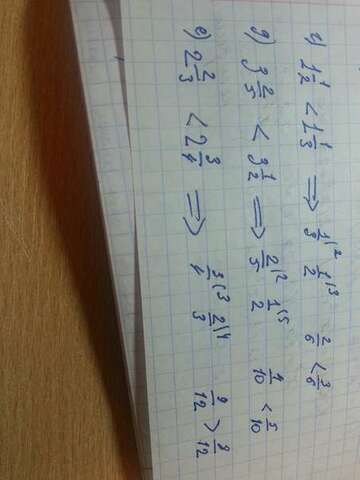 г) 1 1/2 < 1 1/3 ⟹ 1/3 \2 1/2 \3 2/6 < 3/6
д) 3 2/5 < 3 1/2 ⟹ 2/5 \2 1/2 \5 4/10 < 5/10
е) 2 2/3 < 2 3/4 ⟹ 3/4 \3 2/3 \4 9/12 > 8/12